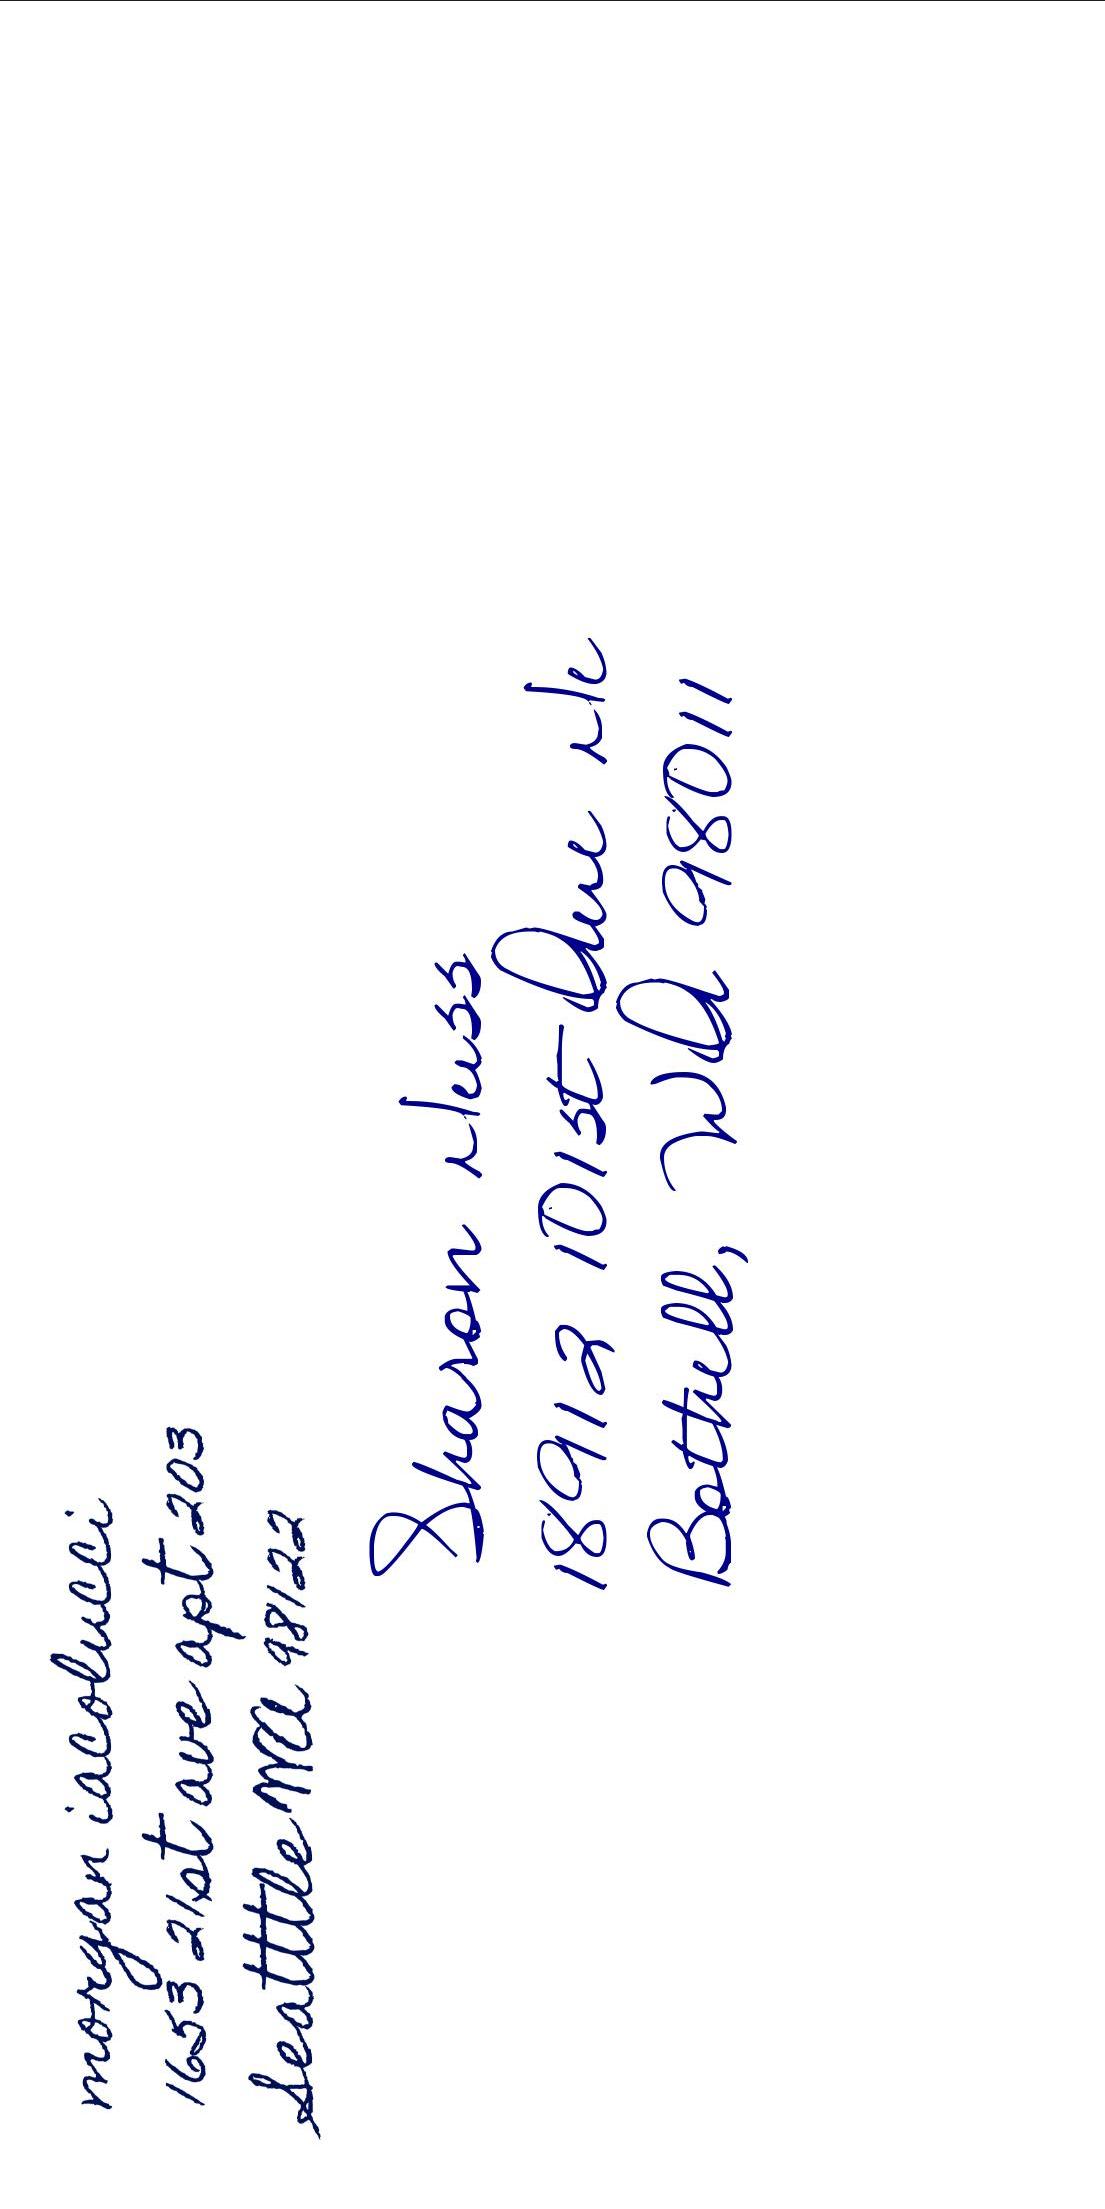 morgan iacolucci
1653 21st ave apt 203
Seattle WA 98122
Sharon Ness
18912 101st Ave Ne
Bothell, WA 98011